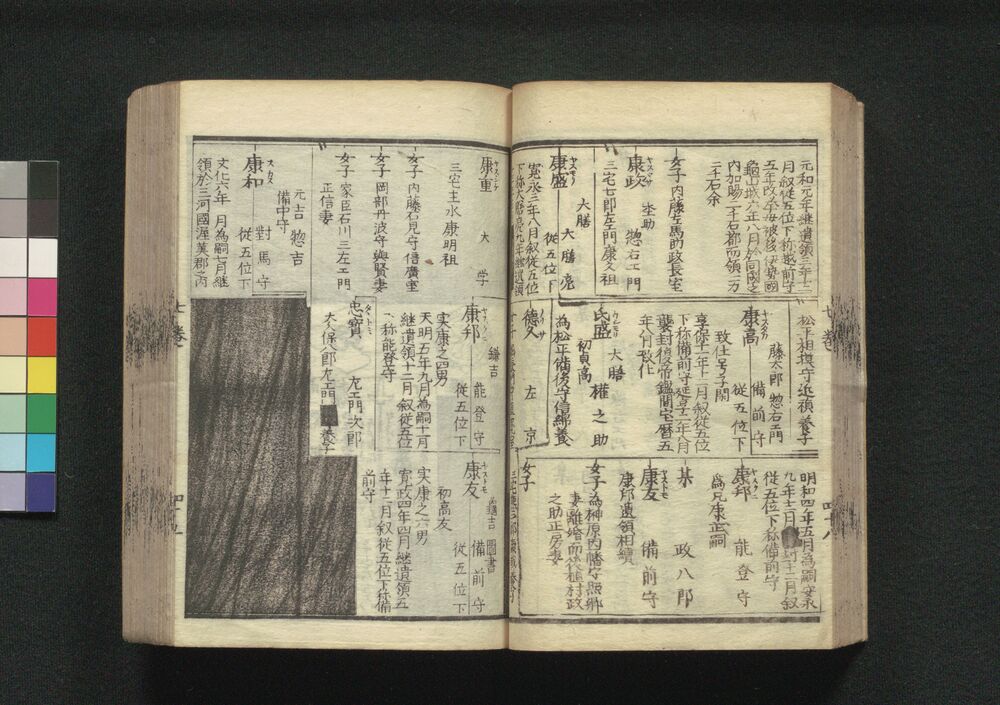 元和元年継遺領三年十二
月叙従五位下称越前守
五年改
龜山城六年八月於同國之
内加賜二千石都而領一万
二千石余
女子 内藤左馬助政長室
康政 ヤスマサ 圶助 惣右エ門
三宅七郎左エ門康久祖
大膳
康盛 ヤスモリ 大膳亮
従五位下
寛永三年八月叙従五位
松平相摸守近禎養子
康高 ヤスタカ 備前守
藤太郎 惣右エ門 従五位下
致仕号子閑
享保十一年十二月叙従五位
下称備前守延享二年八月
襲封後帝鑑間宝暦五
年八月致仕
氏盛 大膳 權之助
初貞高
為松平備後守信綿養
德久 左京
明和四年五月為嗣安永
九年十二月 封十二月叙
従五位下称備前守
康邦 能登守
為兄康武嗣
某 政八郎
康友 ヤストモ 備前守
康邦遺領相續
女子 為榊原因幡守照郷
妻離婚而後植村政
之助正房妻
女子
康重 ヤスシケ 大學
三宅主水康明祖
女子 内藤石見守信廣室
女子 岡部丹波守與賢妻
女子 家臣石川三左エ門
正信妻
元吉 惣吉
備中守
康和 ヤスカス 對馬守
従五位下
文化六年 月為嗣七月継
領於三河國渥美郡之内
康邦 ヤスクニ 鎌吉 能登守
従五位下
実康之四男
天明五年九月為嗣十月
継遺領十二月叙従五位
下称能登守
忠寳 タヽトミ 左エ門次郎
大久保八郎左エ門 養子
康友 ヤストモ 龜吉 圖書 備前守
初高友 従五位下
実康之六男
寛政四年四月継遺領五
年十二月叙従五位下称備
前守
七卷
七卷
四十八
四十五